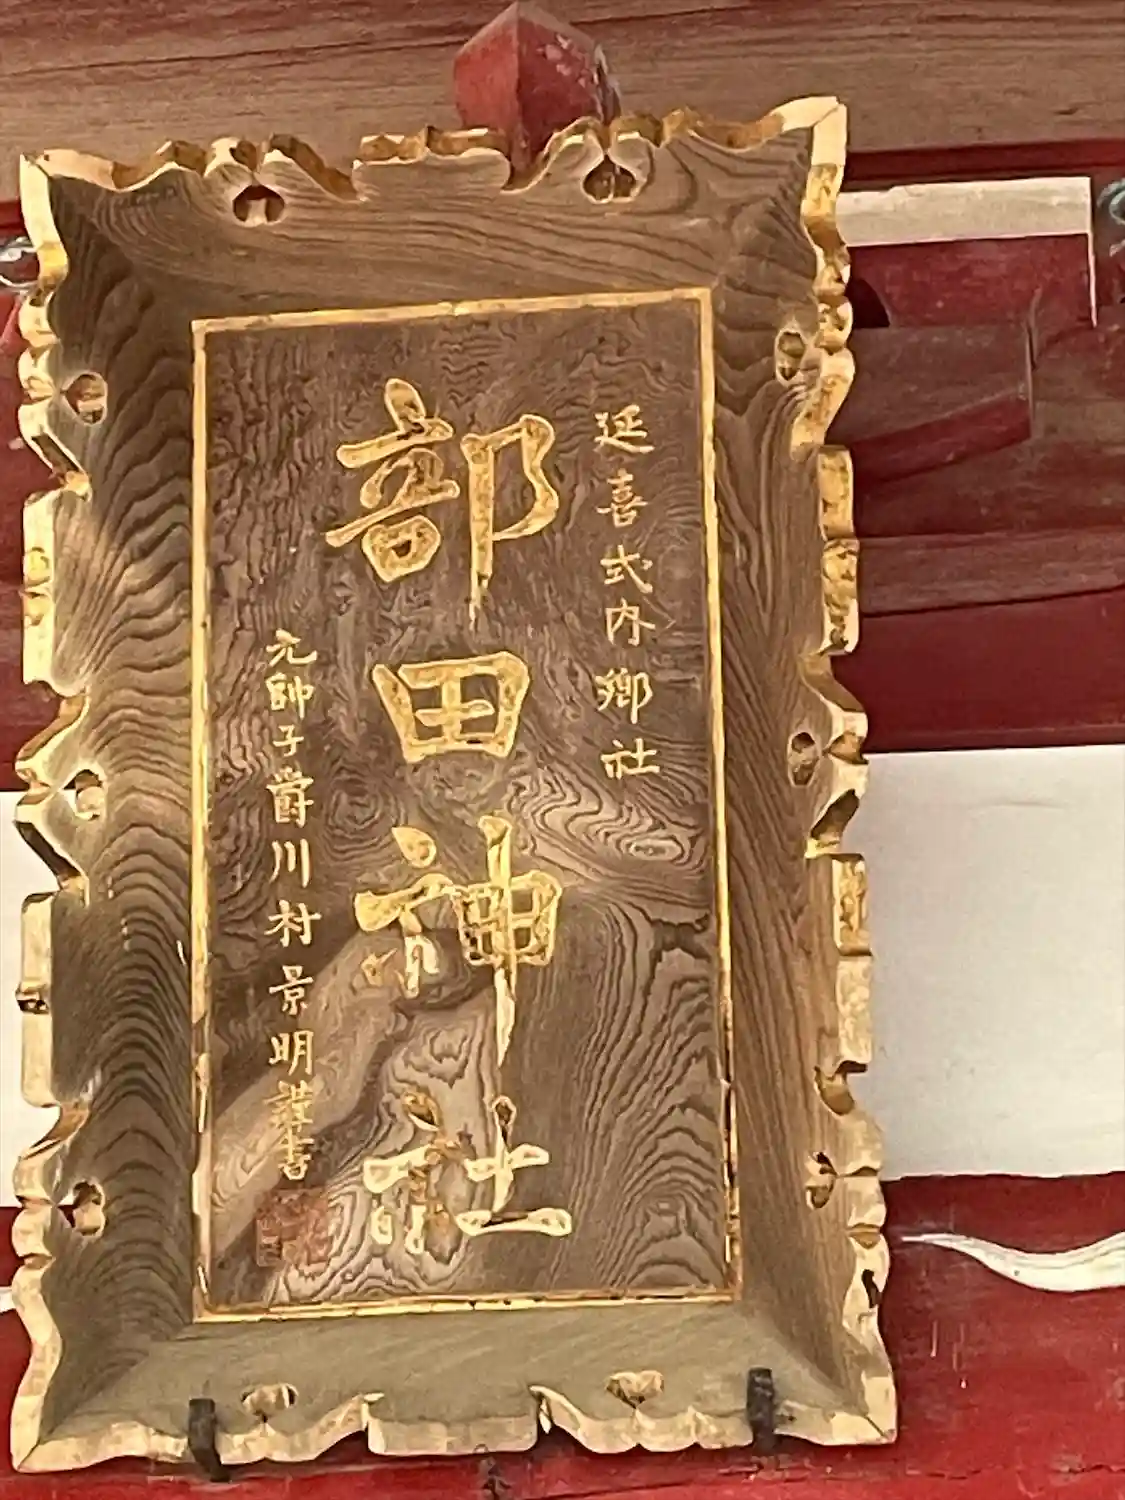 延喜式内郷社
部田神社
元帥子爵川村景明謹書